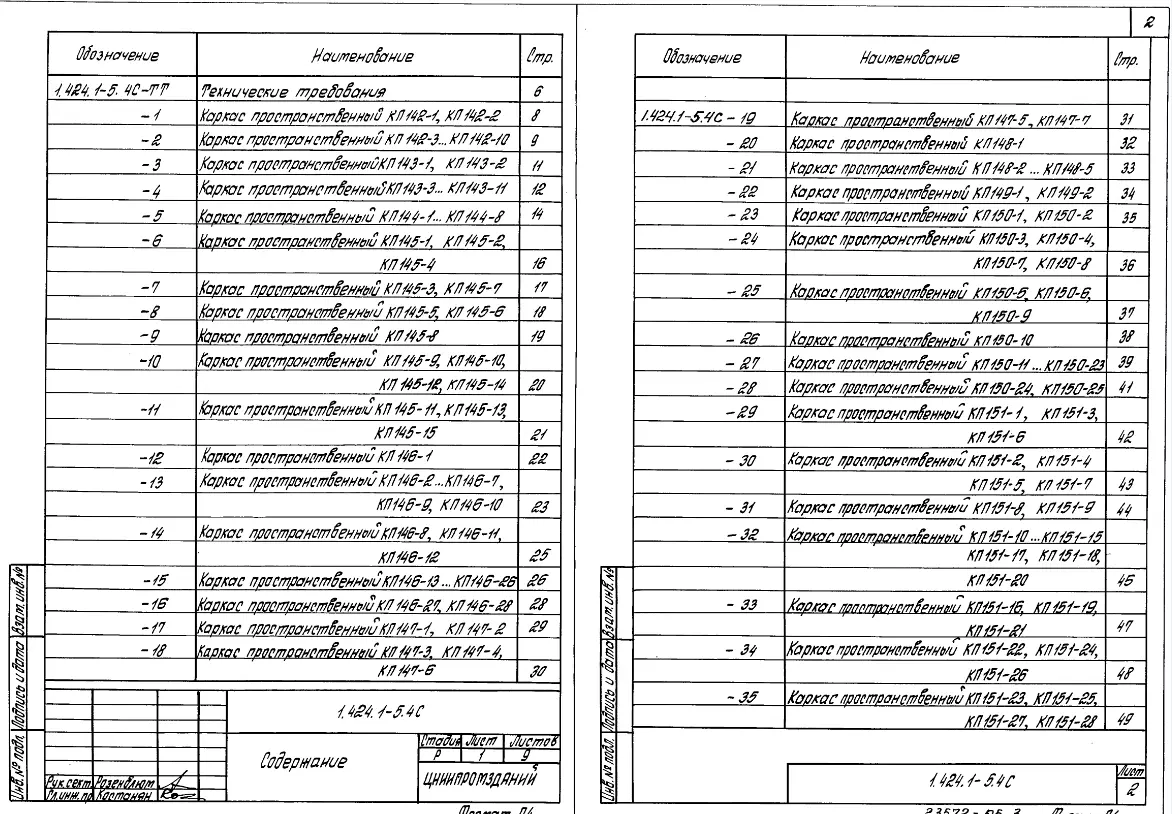 Обозначение Наименование Стр.
1.424.1-5.4С-ТТ Технические требования 6
-1 Каркас пространственный КП142-1, КП142-2 8
-2 Каркас пространственный КП142-3...КП142-10 9
-3 Каркас пространственный КП143-1, КП143-2 11
-4 Каркас пространственный КП143-3...КП143-11 12
-5 Каркас пространственный КП144-1...КП144-8 14
-6 Каркас пространственный КП145-1, КП145-2,
КП145-4 16
-7 Каркас пространственный КП145-3, КП145-7 17
-8 Каркас пространственный КП145-5, КП145-6 18
-9 Каркас пространственный КП145-8 19
-10 Каркас пространственный КП145-9, КП145-10,
КП145-12, КП145-14 20
-11 Каркас пространственный КП145-11, КП145-13,
КП145-15 21
-12 Каркас пространственный КП146-1 22
-13 Каркас пространственный КП146-2...КП146-7,
КП146-9, КП146-10 23
-14 Каркас пространственный КП146-8, КП146-11,
КП146-12 25
-15 Каркас пространственный КП146-13...КП146-26 26
-16 Каркас пространственный КП146-27, КП146-28 28
-17 Каркас пространственный КП147-1, КП147-2 29
-18 Каркас пространственный КП147-3, КП147-4,
КП147-6 30
1.424.1-5.4С
Содержание
Стадия Лист Листов
Р 1 9
ЦНИИПРОМЗДАНИЙ
Рук.сект. Розенблюм
Гл.инж.пр. Костанян
Инв.№ подл. Подпись и дата Взам.инв.№
2
Обозначение Наименование Стр.
1.424.1-5.4С-19 Каркас пространственный КП147-5, КП147-7 31
-20 Каркас пространственный КП148-1 32
-21 Каркас пространственный КП148-2...КП148-5 33
-22 Каркас пространственный КП149-1, КП149-2 34
-23 Каркас пространственный КП150-1, КП150-2 35
-24 Каркас пространственный КП150-3, КП150-4,
КП150-7, КП150-8 36
-25 Каркас пространственный КП150-5, КП150-6,
КП150-9 37
-26 Каркас пространственный КП150-10 38
-27 Каркас пространственный КП150-11...КП150-23 39
-28 Каркас пространственный КП150-24, КП150-25 41
-29 Каркас пространственный КП151-1, КП151-3,
КП151-6 42
-30 Каркас пространственный КП151-2, КП151-4
КП151-5, КП151-7 43
-31 Каркас пространственный КП151-8, КП151-9 44
-32 Каркас пространственный КП151-10...КП151-15
КП151-17, КП151-18,
КП151-20 45
-33 Каркас пространственный КП151-16, КП151-19,
КП151-21 47
-34 Каркас пространственный КП151-22, КП151-24,
КП151-26 48
-35 Каркас пространственный КП151-23, КП151-25,
КП151-27, КП151-28 49
1.424.1-5.4С
Лист
2
Инв.№ подл. Подпись и дата Взам.инв.№